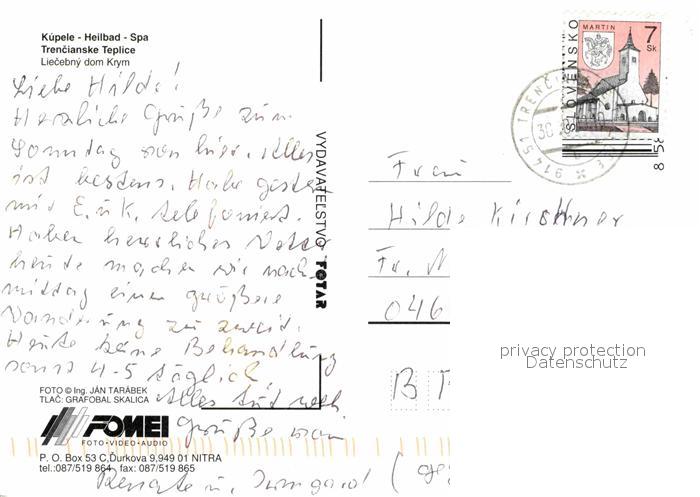 Kúpele - Heilbad - Spa
Trenčianske Teplice
Liečebný dom Krym
Liebe Hilde!
Herzliche Grüße zum
Sonntag von hier. Alles
ist bestens. Habe gestern
mit E. u. K. telefoniert.
Haben herrliches Wetter
heute machen wir nach-
mittag einen größere
Wanderung zu zweit.
Heute keine Behandlung
sonst 4-5 täglich
Alles tut weh
Grüße von
Renate u. Irmgard
FOTO © Ing. JÁN TARÁBEK
TLAČ: GRAFOBAL SKALICA
FOMEI
FOTO·VIDEO·AUDIO
P. O. Box 53 C,Ďurkova 9,949 01 NITRA
tel.:087/519 864 fax: 087/519 865
VYDAVATEĽSTVO FOTAR
MARTIN
7
Sk
SLOVENSKO
91451 TRENČI
30
8 58
Frau
Hilde Kirschner
Fr.
046
B
privacy protection
Datenschutz